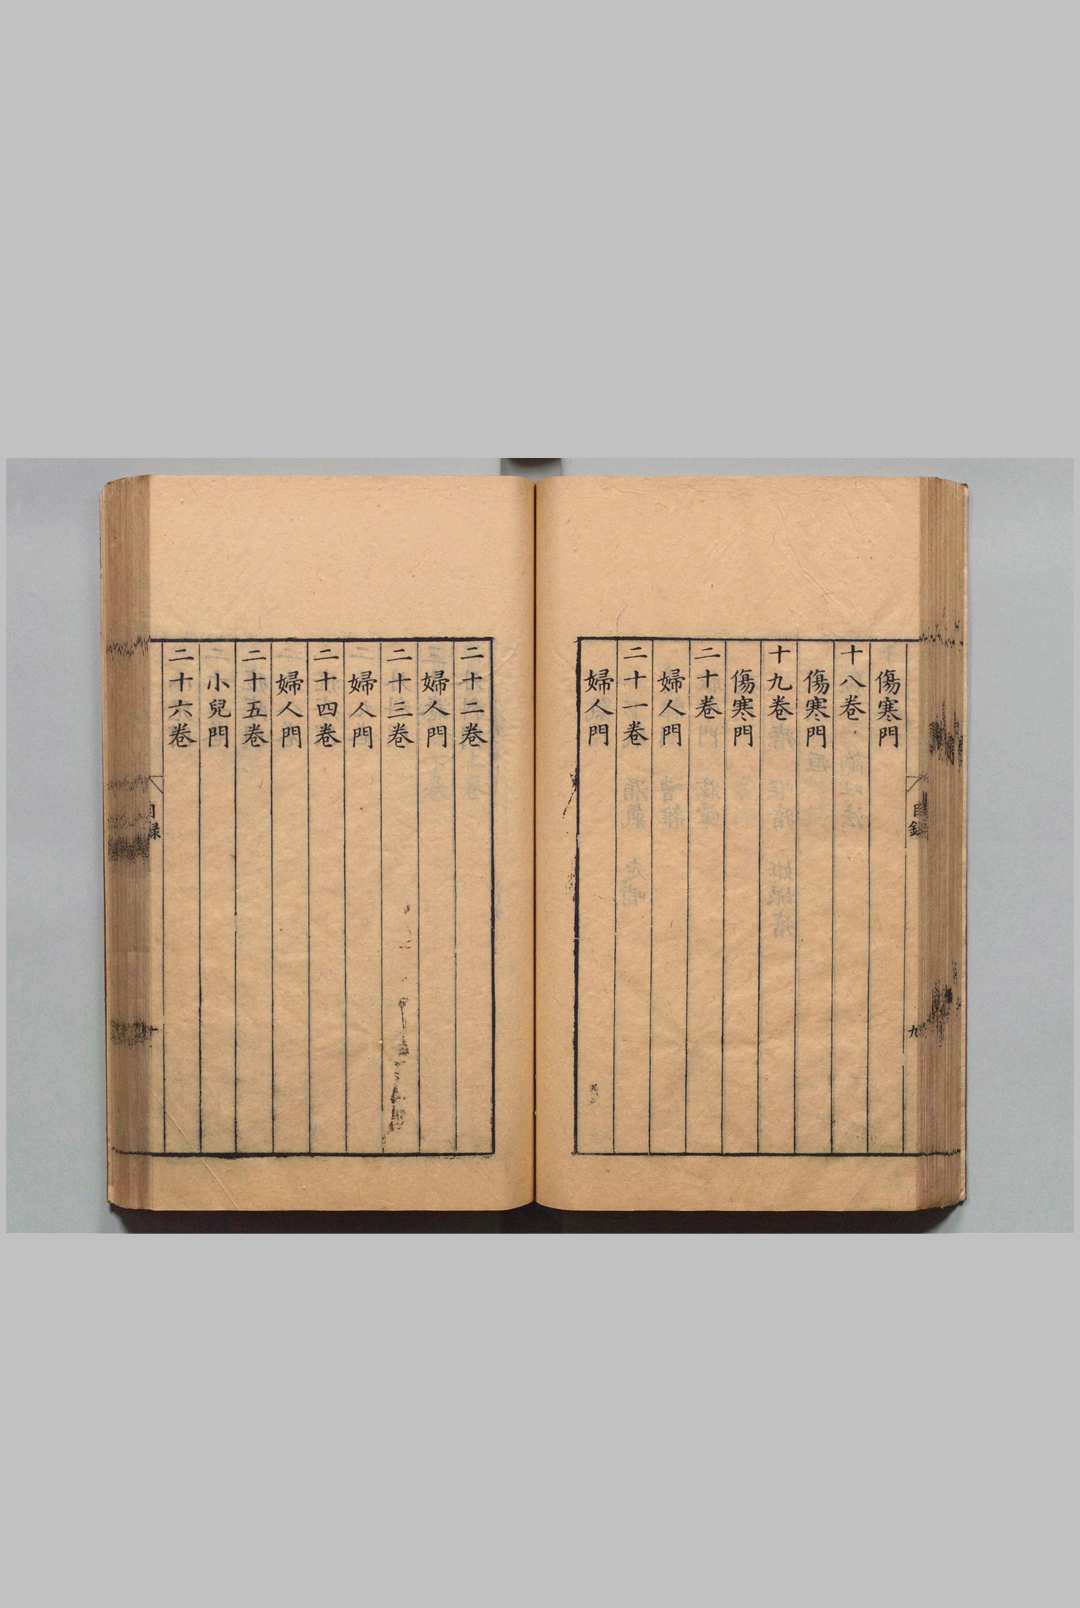 傷寒門
十八卷
傷寒門
十九卷
傷寒門
二十卷
婦人門
二十一卷
婦人門
目錄
九
二十二卷
婦人門
二十三卷
婦人門
二十四卷
婦人門
二十五卷
小兒門
二十六卷
目録